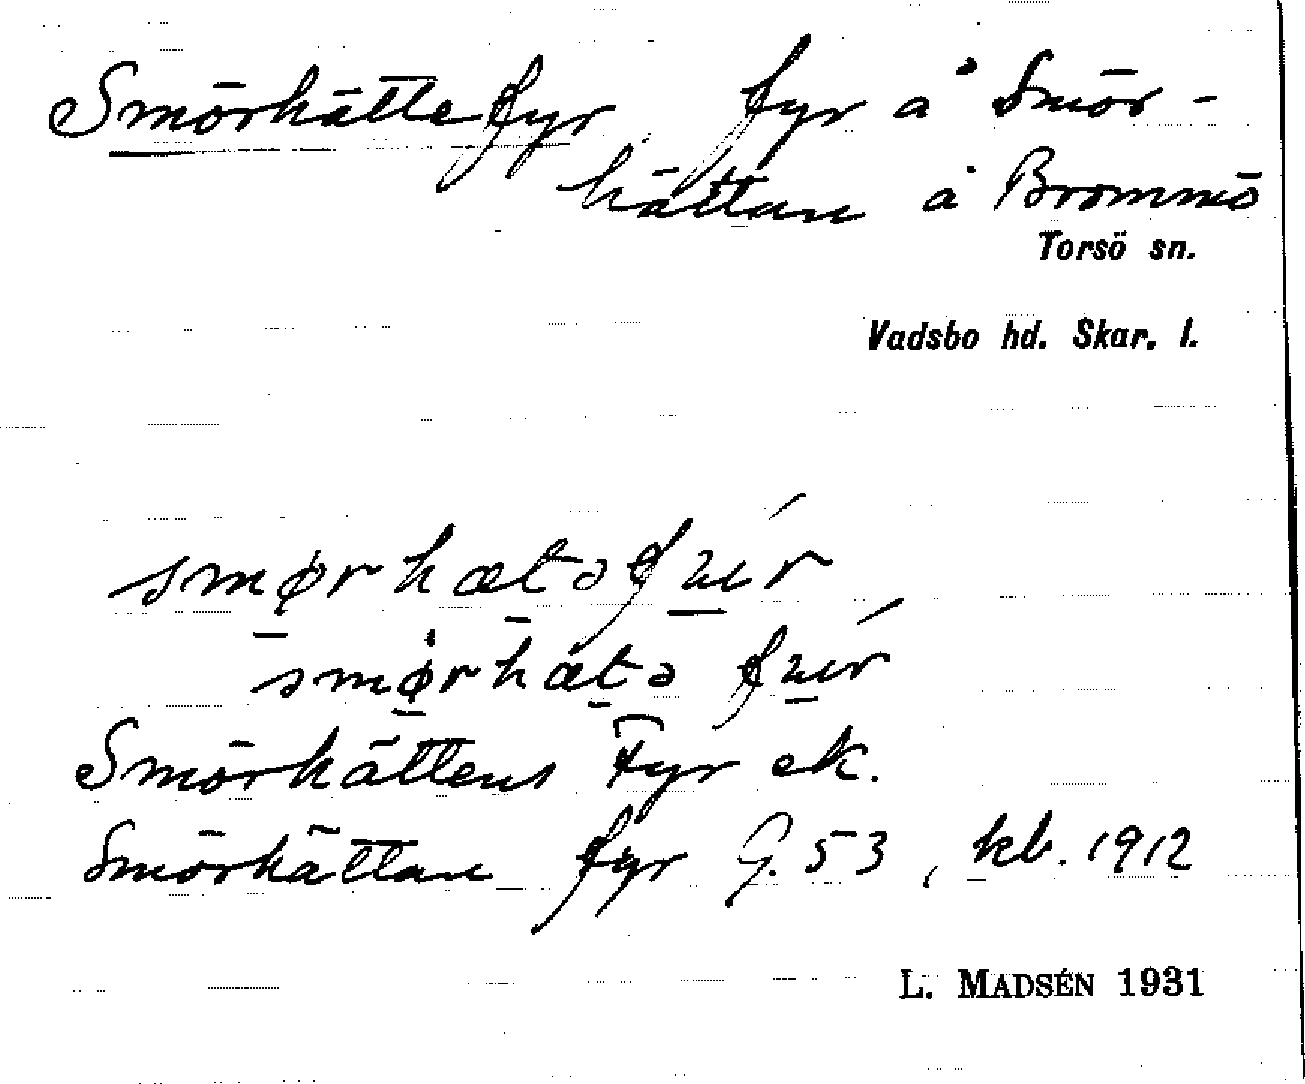 Smörhättefyr fyr å Smör-
hättan å Brommö
Torsö sn.
Vadsbo hd. Skar. l.
smørhætəfuír
smørhætə fuír
Smörhättens Fyr ek.
Smörhättan fyr G. 53, kb. 1912
L. MADSÉN 1931